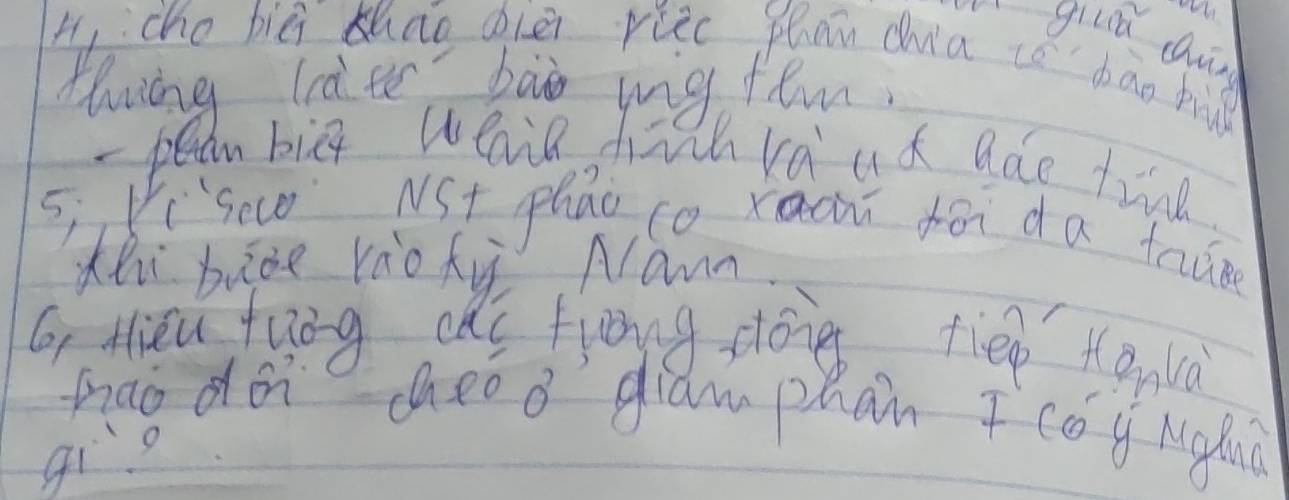 4, cho biết khác biệt việc phân chia tế bào giữa chúng
thường là tế bào ung thư.
- phân biệt u lành tính và u ác tính.
5, Vì sao NST phải co xoắn tối đa trước
khi bước vào kỳ
6, Hiện tượng các tương đồng tiếp hợp và
trao đổi chéo ở giảm phân I có ý nghĩa
gì?